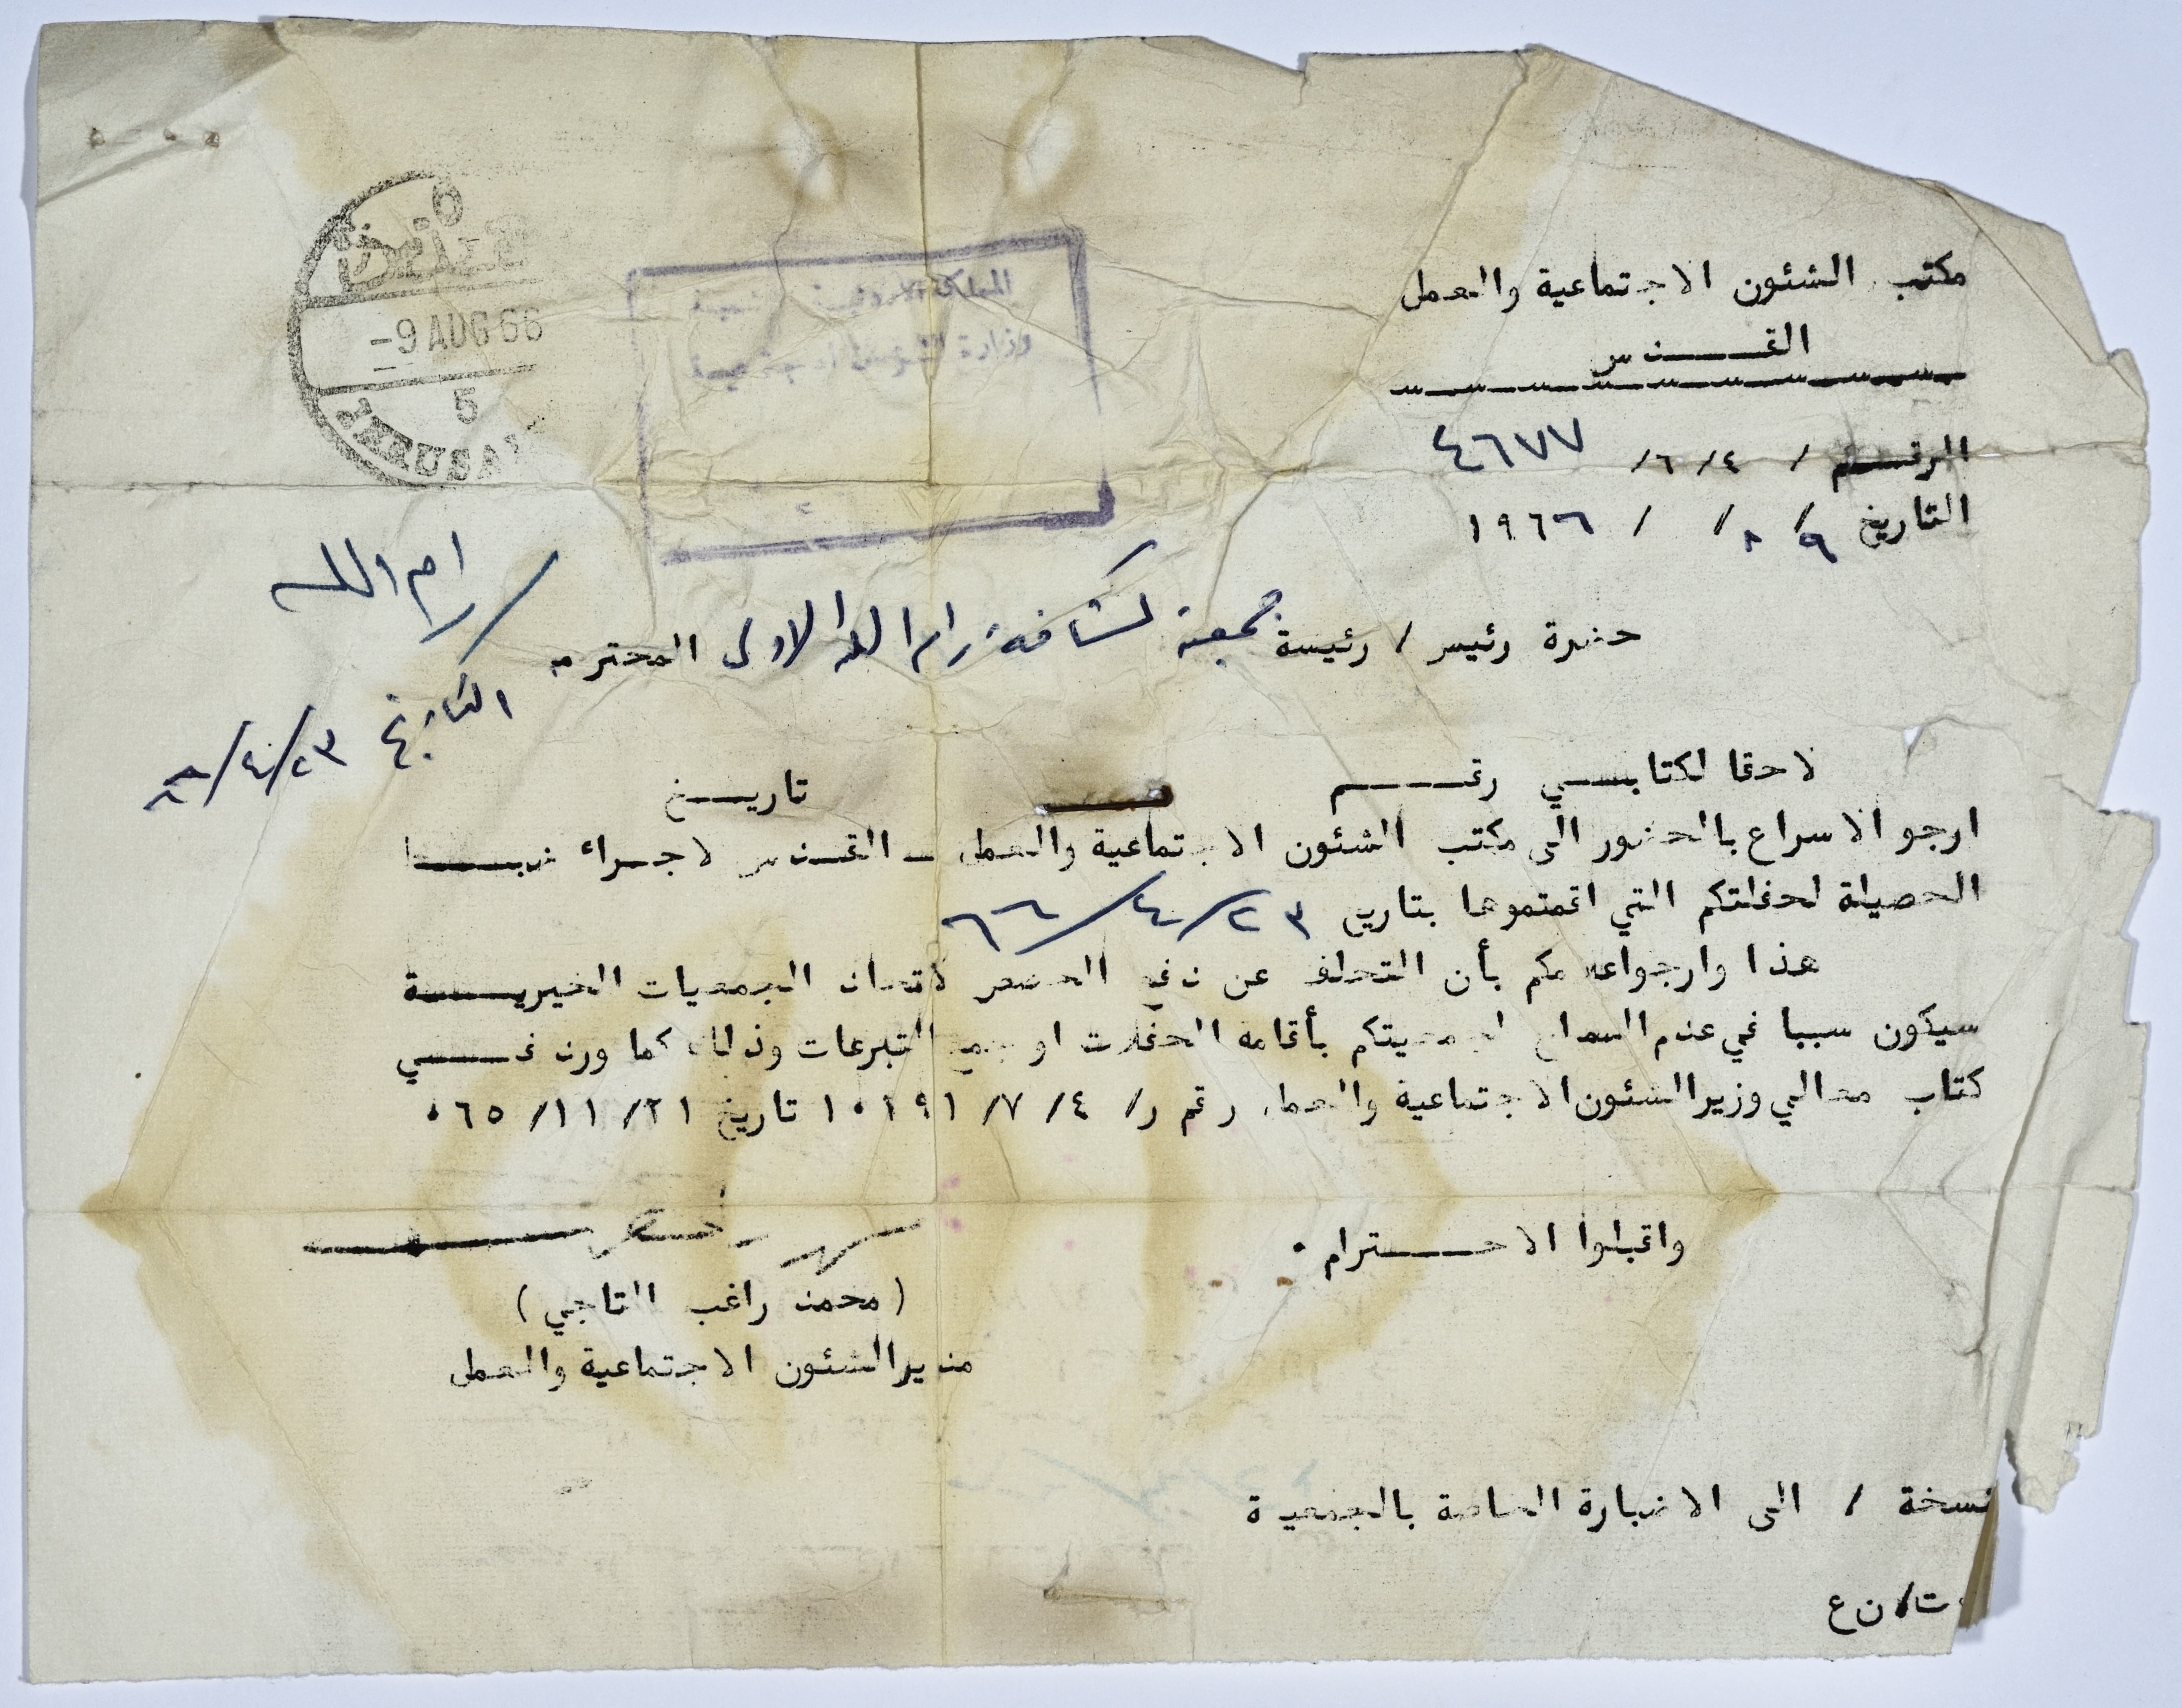 مكتب الشئون الاجتماعية والعمل
القـــدس
الرقـــم / ٤ /٦/ ٤٦٧٧
التاريخ ٩/ ٨/ / ١٩٦٦
-9 AUG 66
5
المملكة الاردنية
وزارة الشؤون
رام الله
حضرة رئيس / رئيسة جمعية كشافة رام الله الاولى المحترم
التاريخ
لاحقا لكتابـــي رقـــــم تاريــــخ
ارجو الاسراع بالحضور الى مكتب الشئون الاجتماعية والعمل ــ القدس لاجــراء ضبــــط
الحصيلة لحفلتكم التي اقمتموها بتاريخ ٢٣/٤/٦٦
هذا وارجو اعلامكم بأن التخلف عن دفع لاتحاد الجمعيات الخيريــــة
سيكون سببا في عدم السماح لجمعيتكم بأقامة الحفلات او جمع التبرعات وذلك كما ورد فـــــي
كتاب معالي وزير الشئون الاجتماعية والعمل رقم ر/ ٤/ ٧/ ١٠١٩١ تاريخ ٢١/ ١١/ ٠٦٥
واقبلوا الاحــــــترام ٠
( محمد راغب التاجي )
مدير الشئون الاجتماعية والعمل
نسخة / الى الاضبارة الخاصة بالجمعية
ت/ن ع